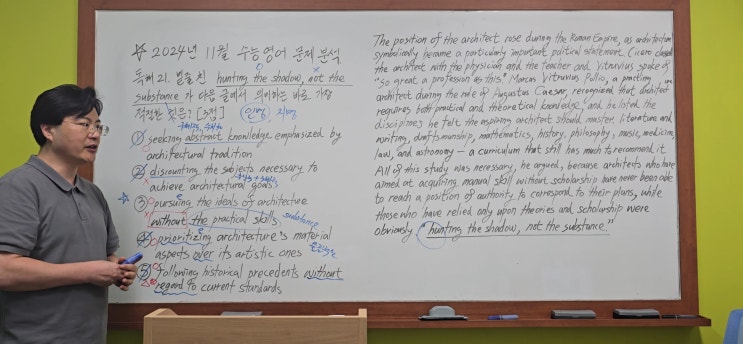 ☆ 2024년 11월 수능영어 문제 분석
독해 21. 밑줄 친 hunting the shadow, not the
substance가 다음 글에서 의미하는 바로 가장
적절한 것은? [3점] 인명 지명
① seeking abstract knowledge emphasized by
architectural tradition
② discounting the subjects necessary to
achieve architectural goals
☆ ③ pursuing the ideals of architecture
without the practical skills substance
④ prioritizing architecture's material
aspects over its artistic ones
⑤ following historical precedents without
regard to current standards
The position of the architect rose during the Roman Empire, as architecture
symbolically became a particularly important political statement. Cicero classed
the architect with the physician and the teacher and Vitruvius spoke of
"so great a profession as this." Marcus Vitruvius Pollio, a practicing
architect during the rule of Augustus Caesar, recognized that architecture
requires both practical and theoretical knowledge, and he listed the
disciplines he felt the aspiring architect should master: literature and
writing, draftsmanship, mathematics, history, philosophy, music, medicine,
law, and astronomy — a curriculum that still has much to recommend it.
All of this study was necessary, he argued, because architects who have
aimed at acquiring manual skill without scholarship have never been able
to reach a position of authority to correspond to their plans, while
those who have relied only upon theories and scholarship were
obviously "hunting the shadow, not the substance."